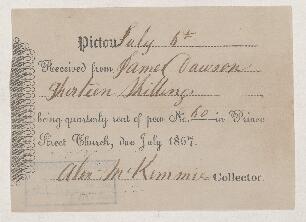 Pictou July 5th
Received from James Dawson
Thirteen Shillings
being quarterly rent of pew No. 60 in Prince
Street Church, due July 1867.
Alex. McKimmie Collector.